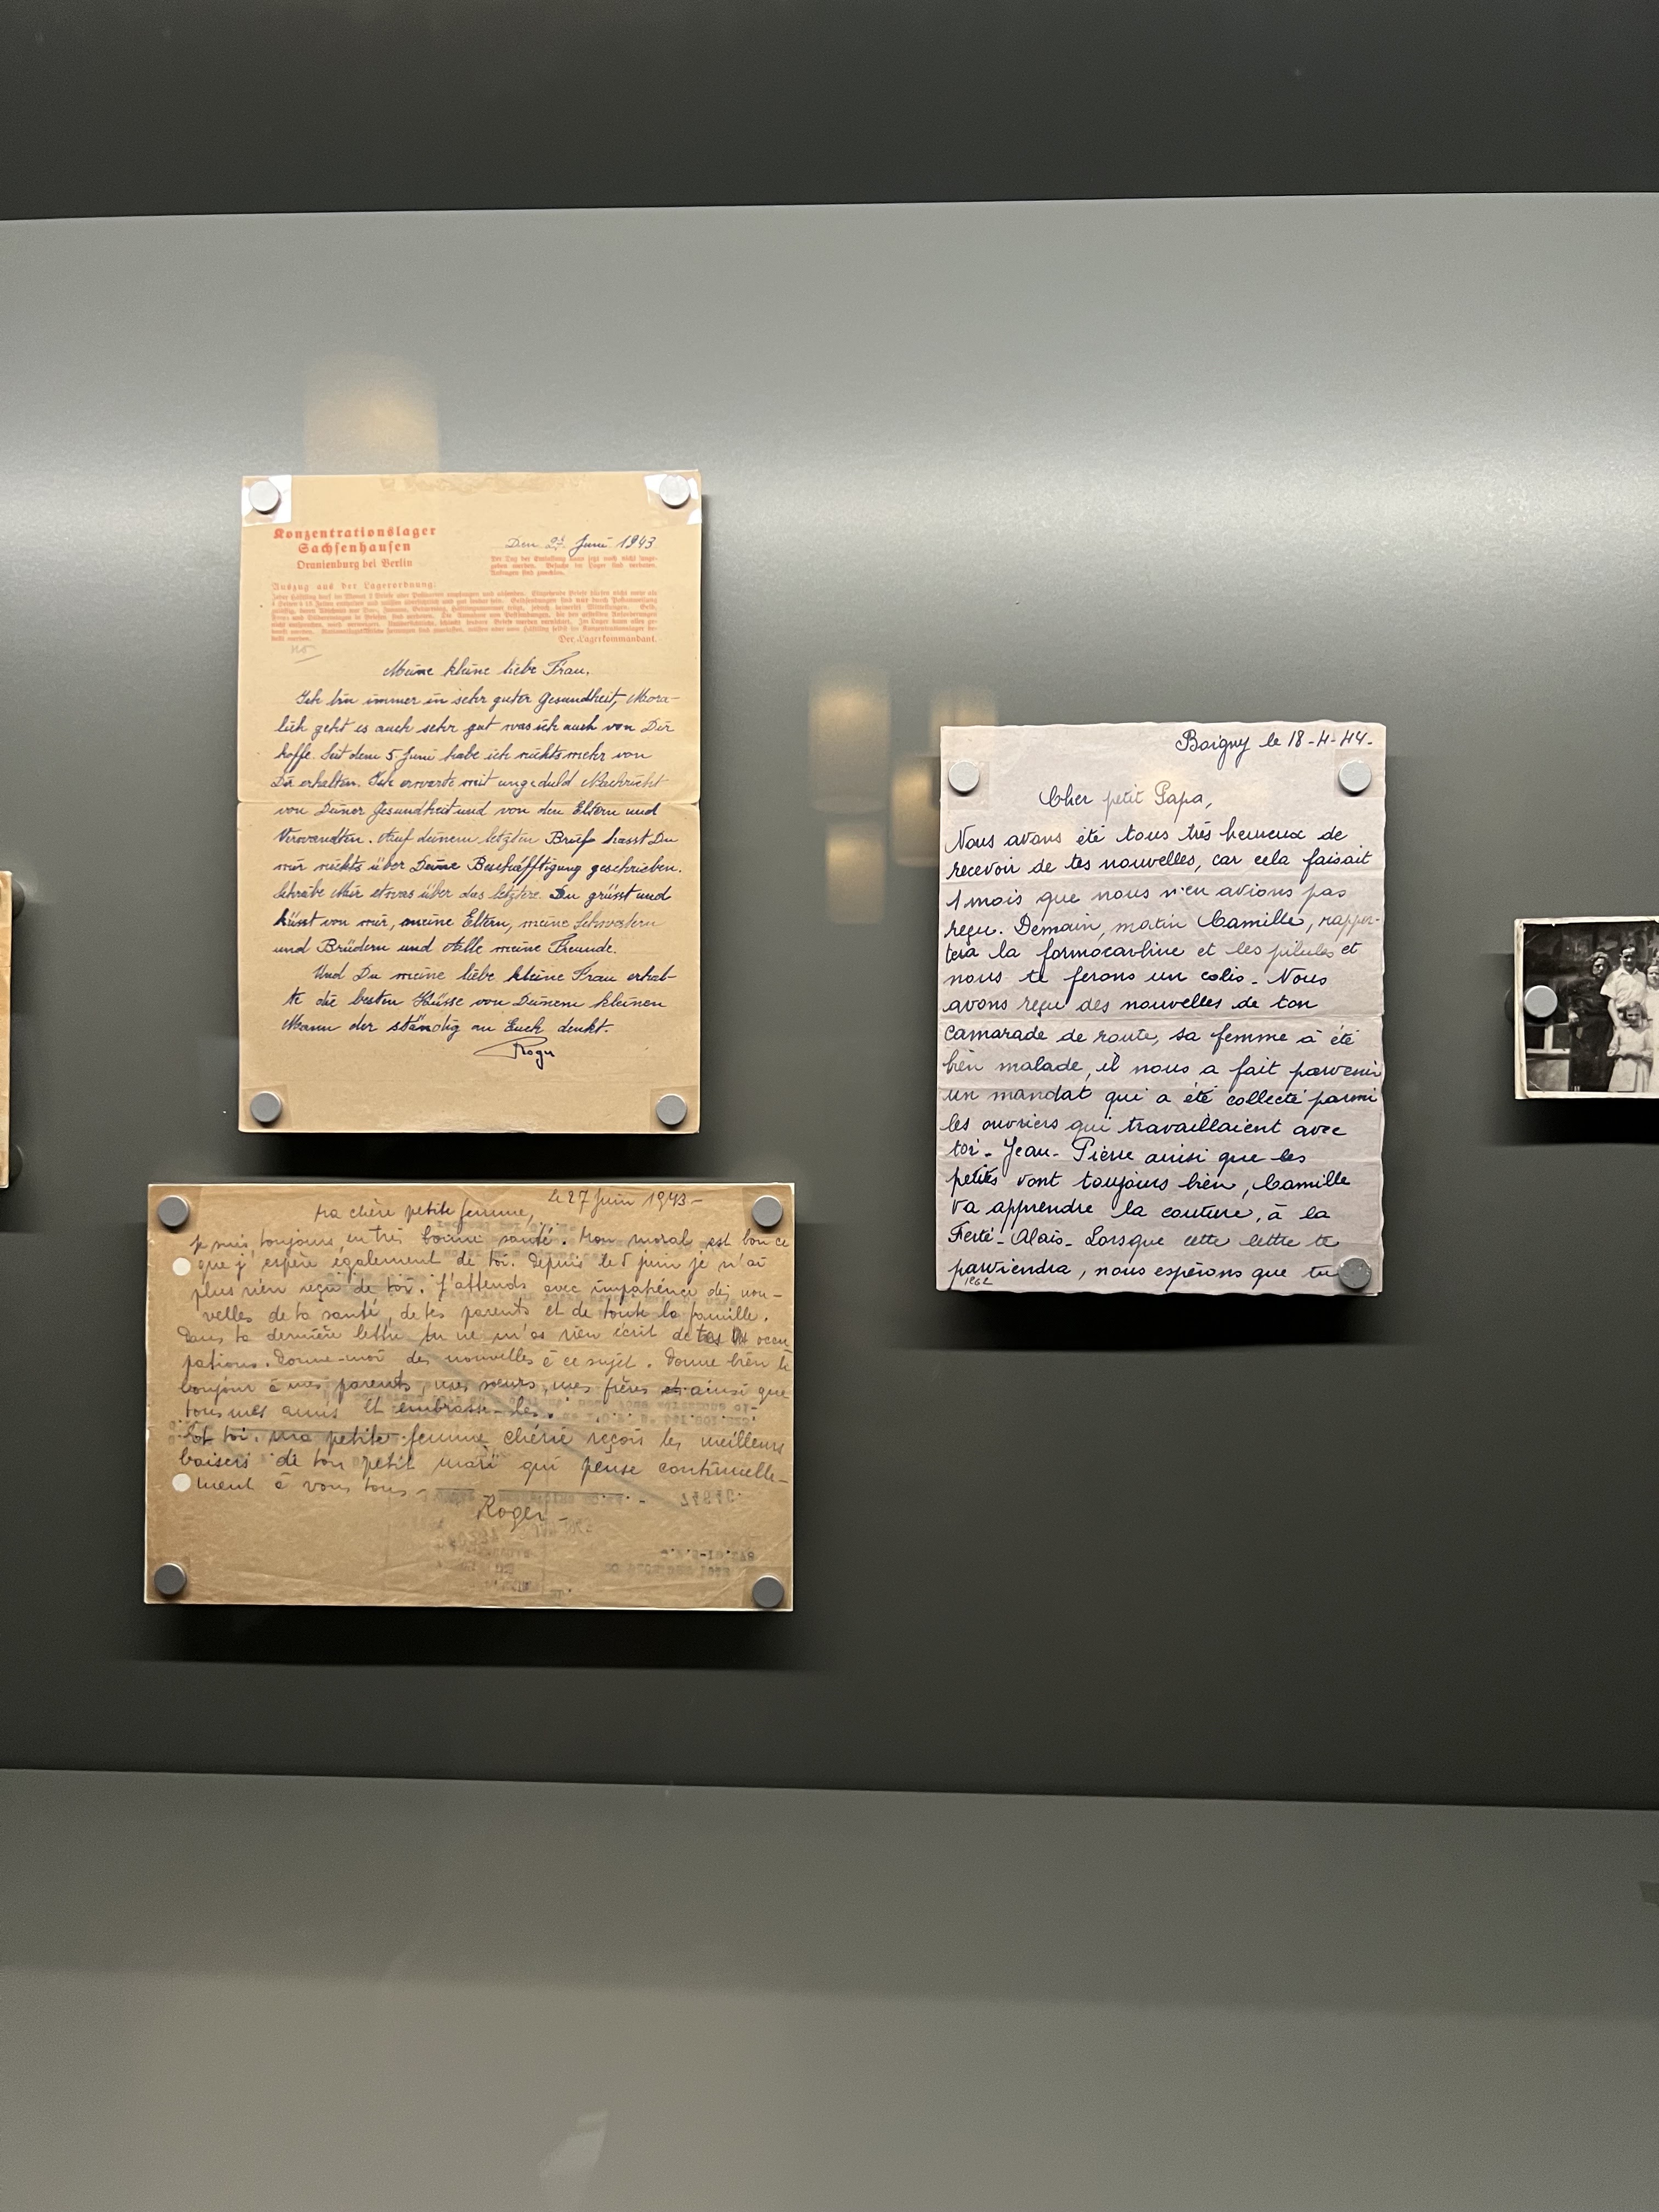 Konzentrationslager
Sachsenhausen
Oranienburg bei Berlin
Den Juni 1943
Der Tag der Entlassung kann jetzt noch nicht ange-
geben werden. Besuche im Lager sind verboten.
Anfragen sind zwecklos.
Auszug aus der Lagerordnung:
Der Lagerkommandant.
Meine kleine liebe Frau.
Ich bin immer in sehr guter Gesundheit, Mora-
lich geht es auch sehr gut was ich auch von Dir
hoffe. Seit dem 5. Juni habe ich nichts mehr von
Dir erhalten. Ich erwarte mit ungeduld Nachricht
von Deiner Gesundheit und von den Eltern und
Verwandten. Auf deinem letzten Brief hasst Du
mir nichts über Deine Beschäfftigung geschrieben.
Schreibe Mir etwas über das letztere. Du grüsst und
küsst von mir, meine Eltern, meine Schwestern
und Brüdern und Alle meine Freunde.
Und Du meine liebe kleine Frau erhal-
te die besten Küsse von Deinem kleinen
Mann der ständig an Euch denkt.
Roger
Le 27 Juin 1943 -
Ma chère petite femme,
je suis toujours en très bonne santé. Mon moral est bon ce
que j'espère également de toi. Depuis le 5 juin je n'ai
plus rien reçu de toi. J'attends avec impatience des nou-
velles de ta santé, de tes parents et de toute la famille.
Dans ta dernière lettre tu ne m'as rien écrit de tes occu
pations. Donne-moi des nouvelles à ce sujet. Donne bien le
bonjour à mes parents, mes sœurs, mes frères et ainsi que
tous mes amis et embrasse-les.
Et toi, ma petite femme chérie reçois les meilleurs
baisers de ton petit mari qui pense continuelle-
ment à vous tous -
Roger -
Boigny le 18-4-44.
Cher petit Papa,
Nous avons été tous très heureux de
recevoir de tes nouvelles, car cela faisait
1 mois que nous n'en avions pas
reçu. Demain, matin Camille, rappor-
tera la formocarbine et les pilules et
nous te ferons un colis. Nous
avons reçu des nouvelles de ton
camarade de route, sa femme à été
bien malade, il nous a fait parvenir
un mandat qui a été collecté parmi
les ouvriers qui travaillaient avec
toi. Jean-Pierre ainsi que les
petites vont toujours bien, Camille
va apprendre la couture, à la
Ferté-Alais. Lorsque cette lettre te
parviendra, nous espérons que tu